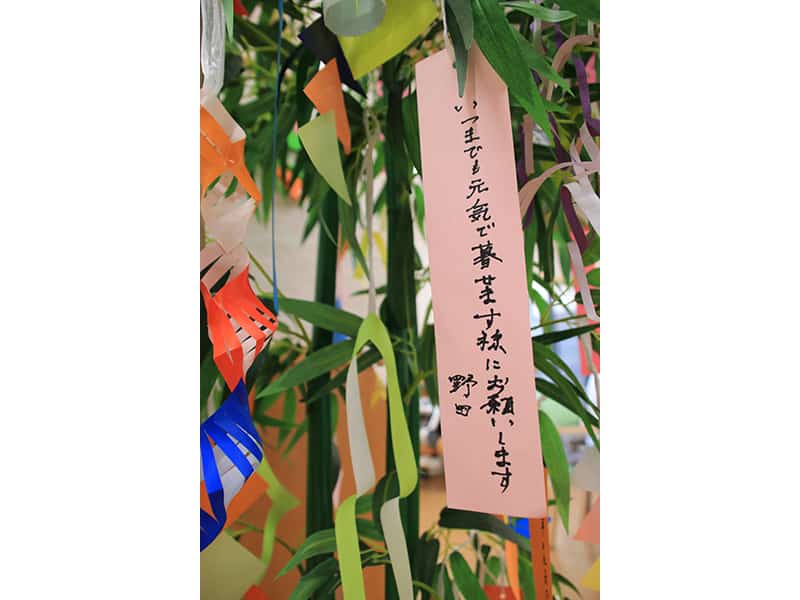 いつまでも元気で暮せます様にお願いします
野田